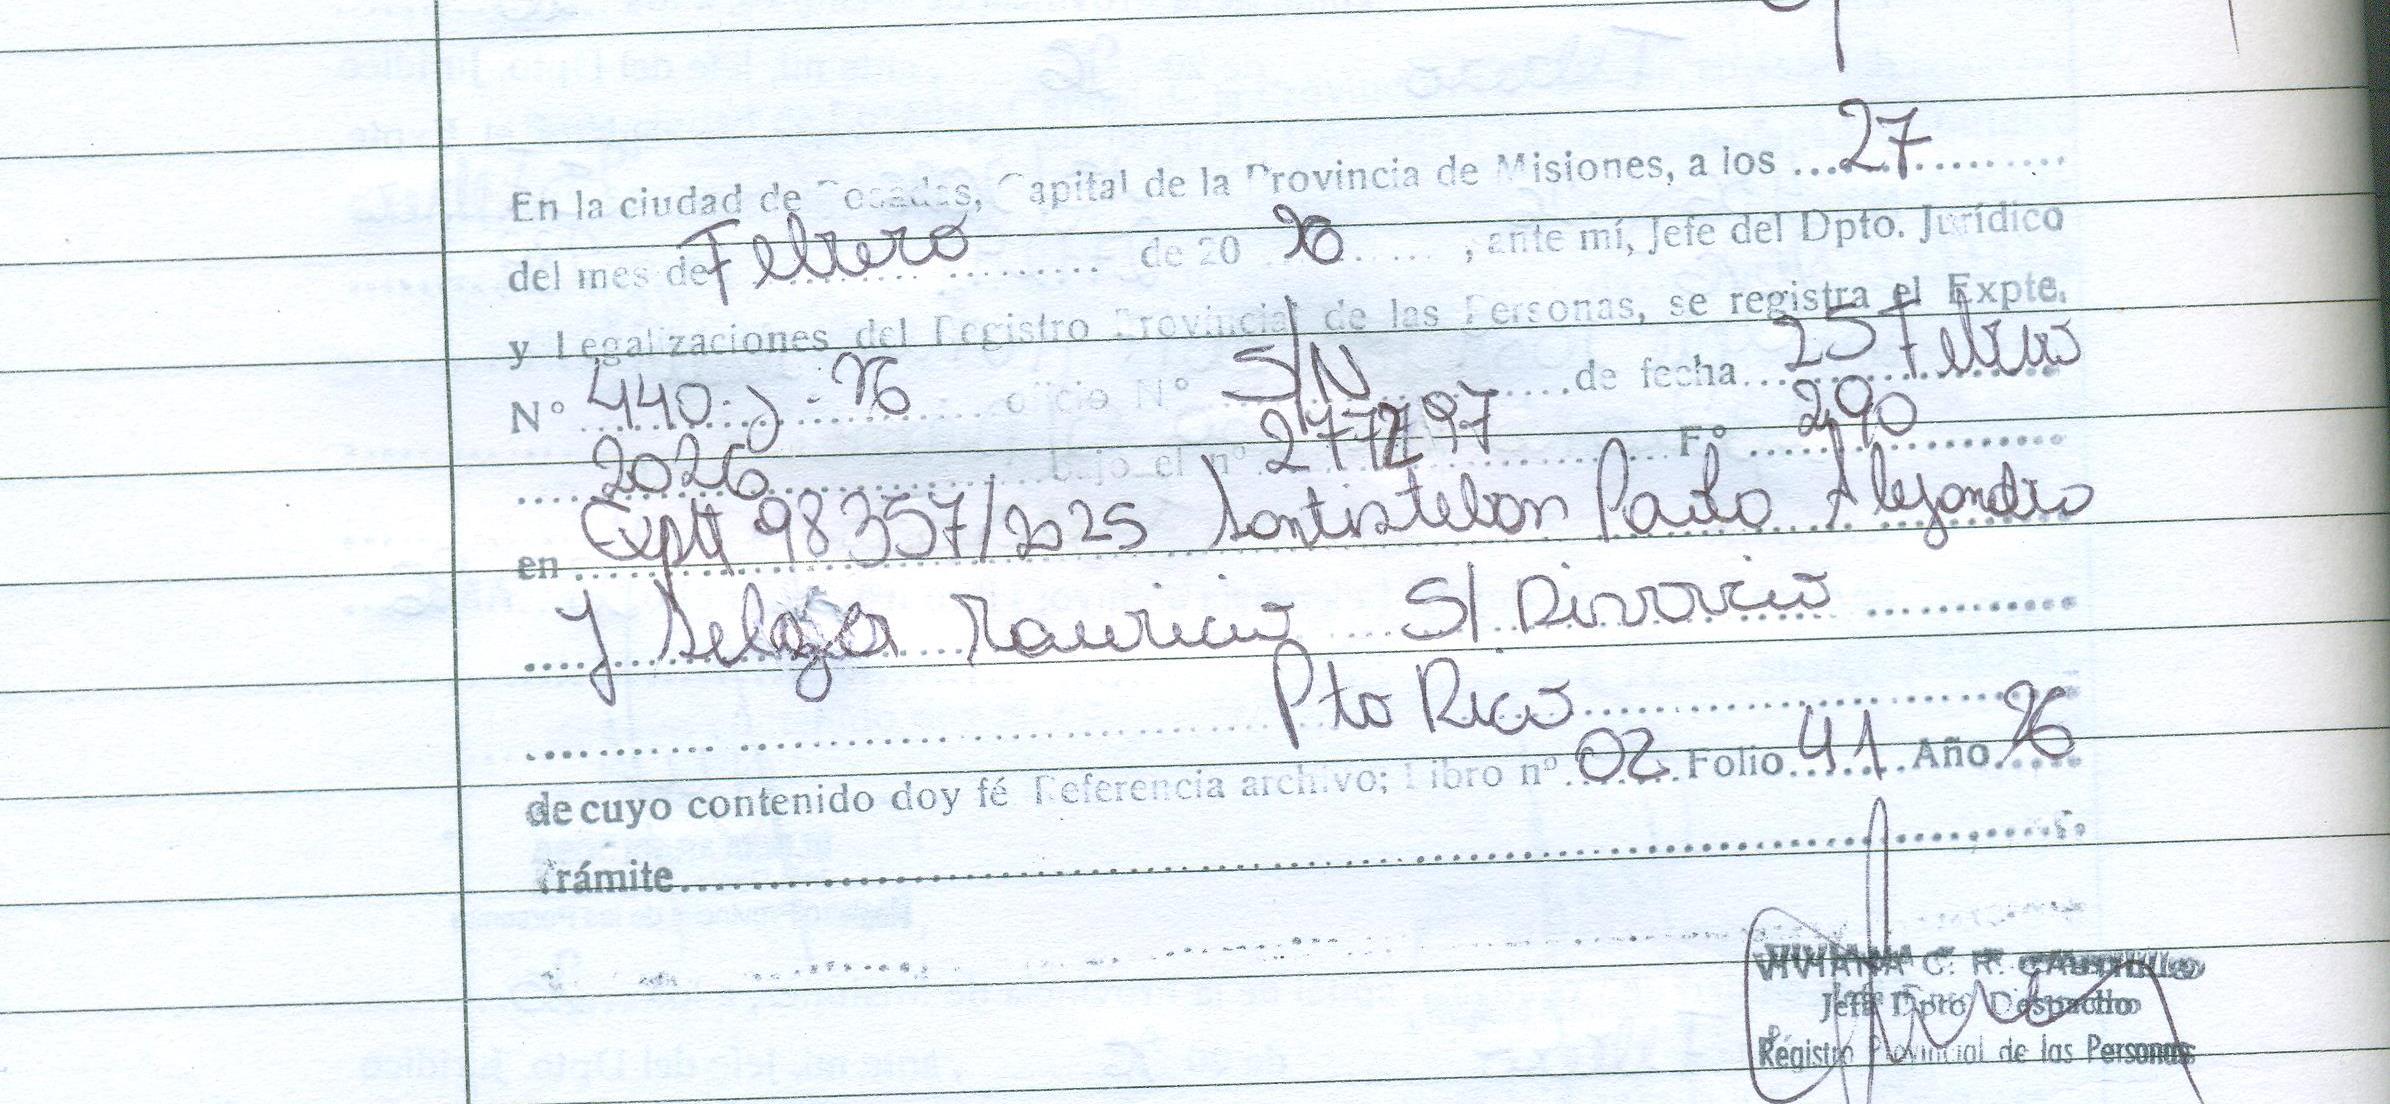 En la ciudad de Posadas, Capital de la Provincia de Misiones, a los ... 27 ...
del mes de Febrero ... de 20 26 ..., ante mí, Jefe del Dpto. Jurídico
y Legalizaciones del Registro Provincial de las Personas, se registra el Expte.
N° 440 - J - 26 ... oficio N° S/N ... de fecha 25 Febrero
... 2026 ... bajo el n° 277297 ... F° 290 ...
en Expte 98357/2025 Santisteban Paulo Alejandro
y Mauricio S/ Divorcio ...
... Pto Rico ...
de cuyo contenido doy fé Referencia archivo; Libro n° 02 Folio 41 Año 26
Trámite ...
VIVIANA C. R.
Jefe Dpto Despacho
Registro Provincial de las Personas